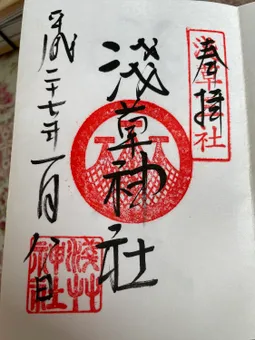 奉拝
浅草神社
浅草神社
平成二十七年一月八日
浅草神社